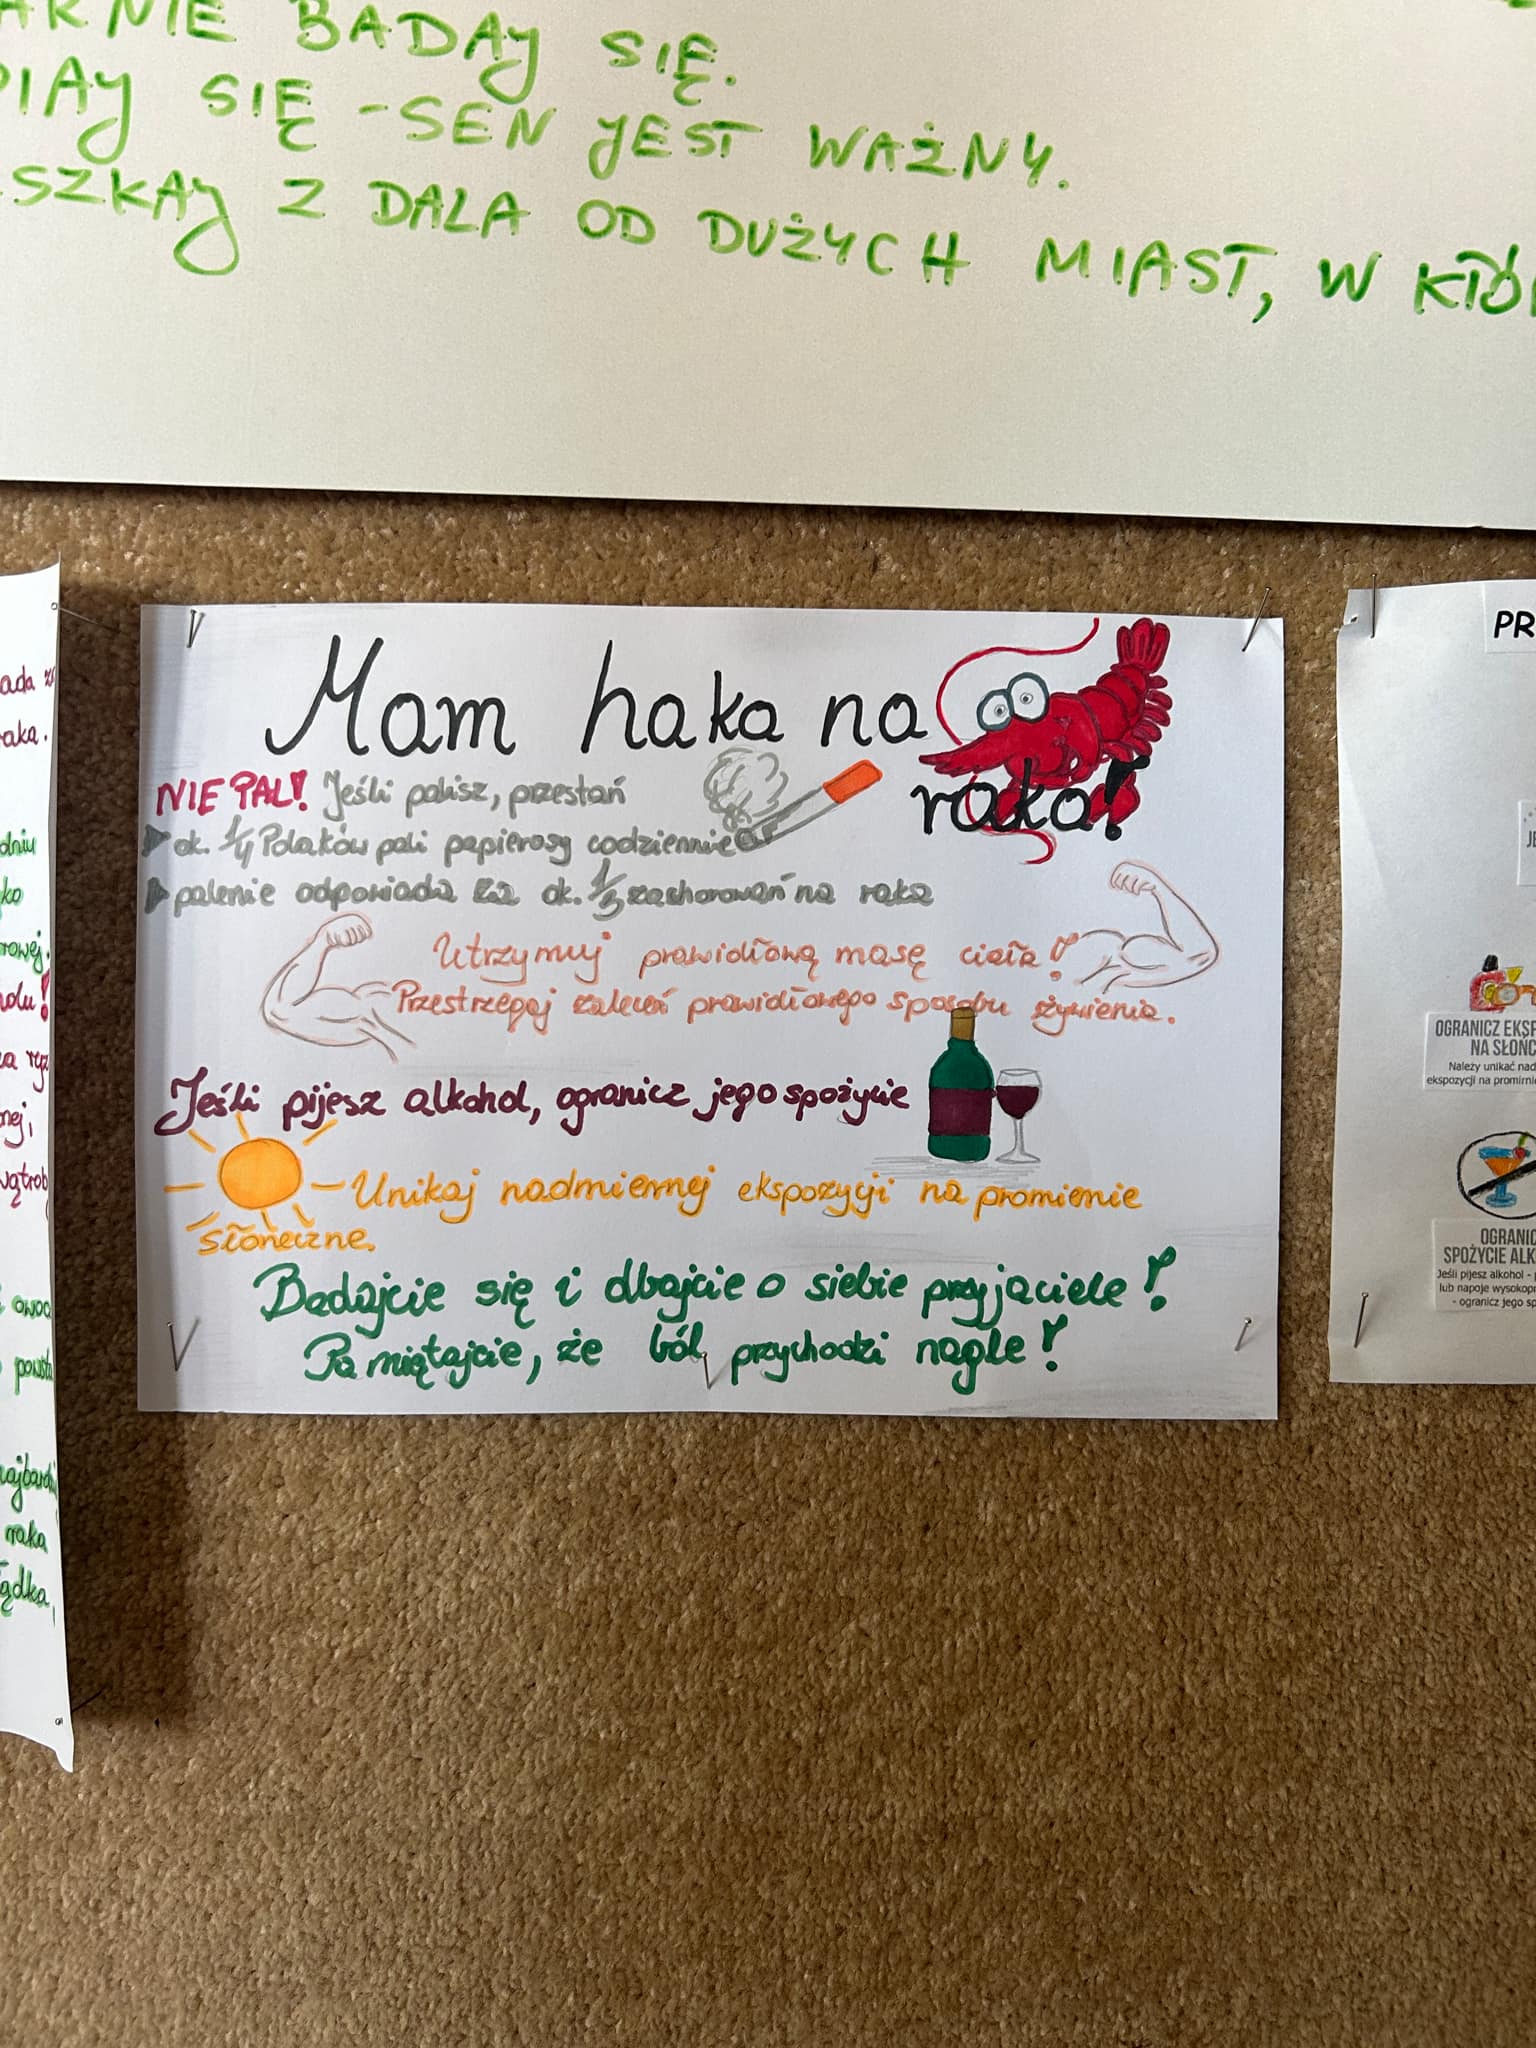 BADAY SIĘ.
SIĘ - SEN JEST WAŻNY.
Z DALA OD DUŻYCH MIAST, W
Mam haka na
raka!
NIE PAL! Jeśli palisz, przestań
ok. 1/4 Polaków pali papierosy codziennie
palenie odpowiada za ok. 1/3 zachorowań na raka
Utrzymuj prawidłową masę ciała!
Przestrzegaj zaleceń prawidłowego sposobu żywienia.
Jeśli pijesz alkohol, ogranicz jego spożycie
Unikaj nadmiernej ekspozycji na promienie
słoneczne.
Badajcie się i dbajcie o siebie przyjaciele!
Pamiętajcie, że ból przychodzi nagle!
raka.
owoc
raka
PR
JE
OGRANICZ EKSP
NA SŁOŃC
Należy unikać nad
ekspozycji na promieni
OGRANIC
SPOŻYCIE ALK
Jeśli pijesz alkohol -
lub napoje wysokopr
- ogranicz jego sp